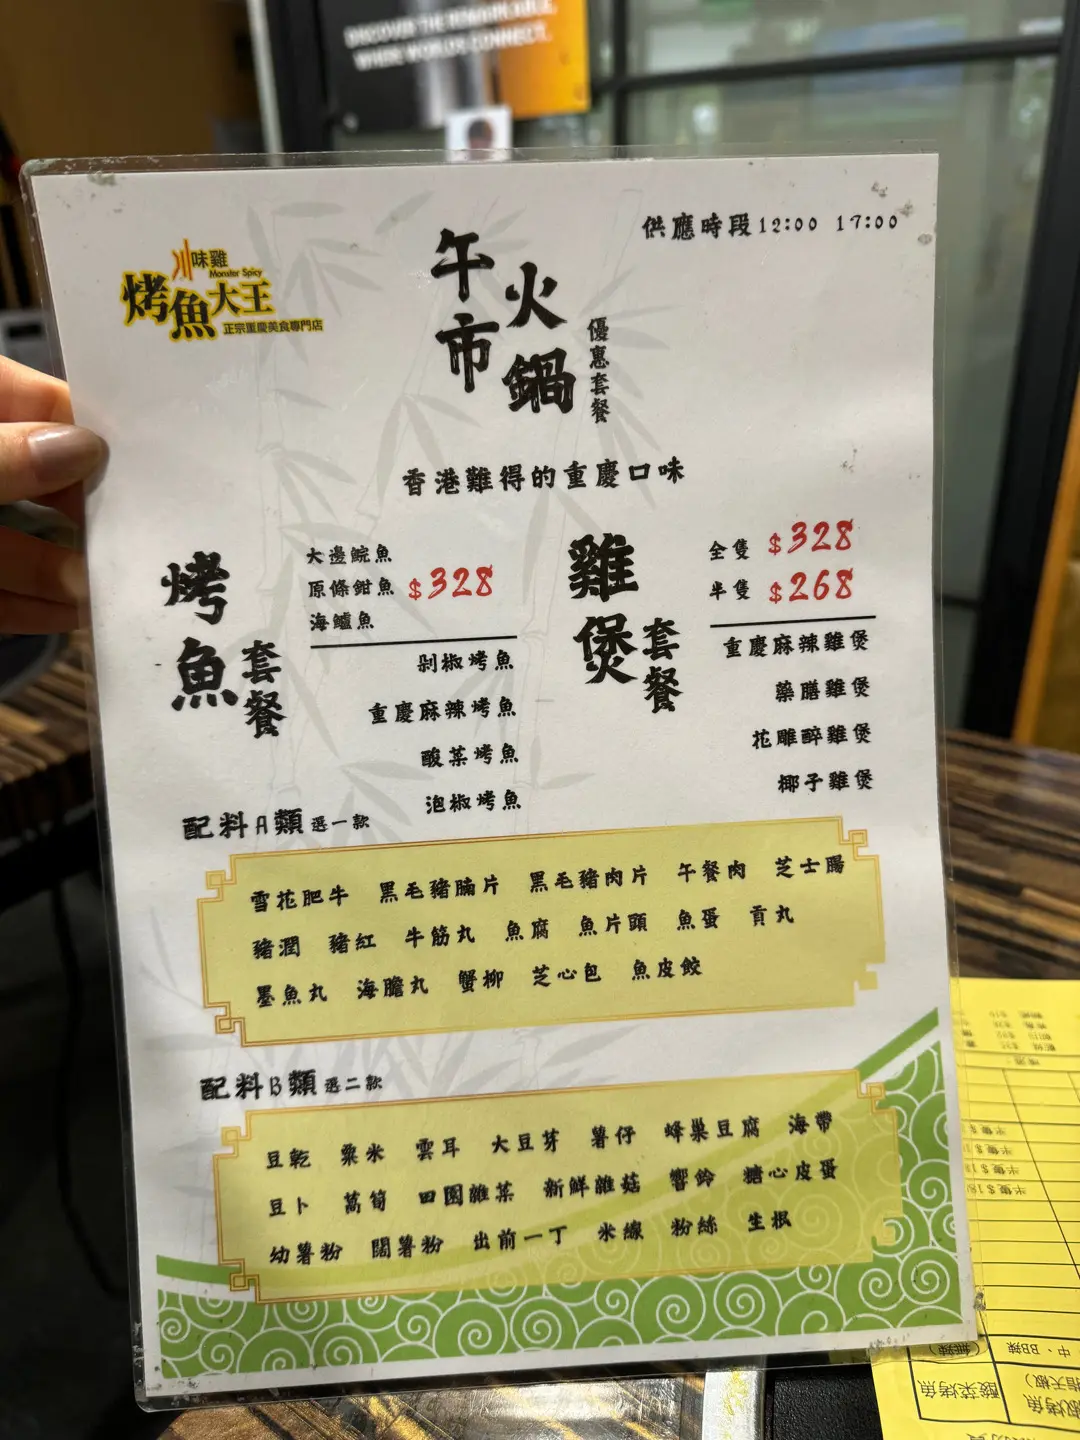 DISCOVER THE REMARKABLE,
WHERE WORLDS CONNECT.
供應時段12:00 17:00
川味雞
Monster Spicy
烤魚大王
正宗重慶美食專門店
午市
火鍋
優惠套餐
香港難得的重慶口味
烤魚套餐
大邊鯇魚
原條鉗魚
海鱸魚
$328
剁椒烤魚
重慶麻辣烤魚
酸菜烤魚
泡椒烤魚
雞煲套餐
全隻 $328
半隻 $268
重慶麻辣雞煲
藥膳雞煲
花雕醉雞煲
椰子雞煲
配料A類 選一款
雪花肥牛 黑毛豬腩片 黑毛豬肉片 午餐肉 芝士腸
豬潤 豬紅 牛筋丸 魚腐 魚片頭 魚蛋 貢丸
墨魚丸 海膽丸 蟹柳 芝心包 魚皮餃
配料B類 選二款
豆乾 粟米 雲耳 大豆芽 薯仔 蜂巢豆腐 海帶
豆卜 萵筍 田園雜菜 新鮮雜菇 響鈴 糖心皮蛋
幼薯粉 闊薯粉 出前一丁 米線 粉絲 生根
中、BB辣
(無辣)
酸菜烤魚